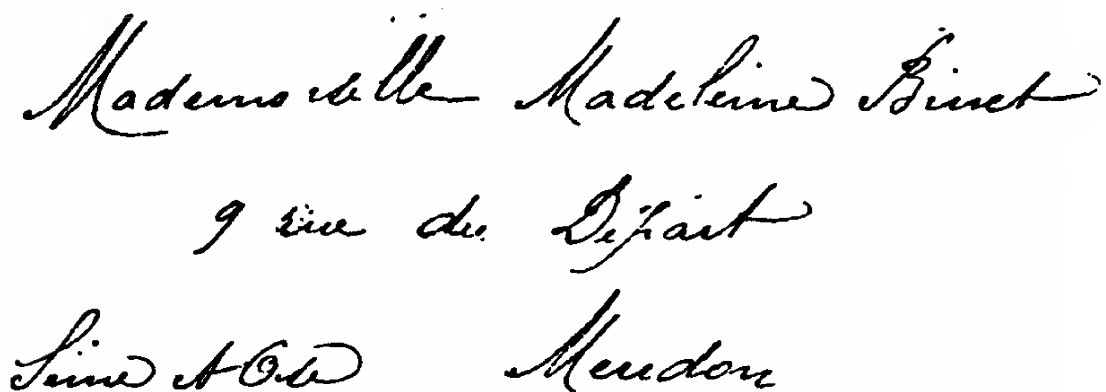 Mademoiselle Madeleine Binet
9 rue du Départ
Seine et Oise Meudon